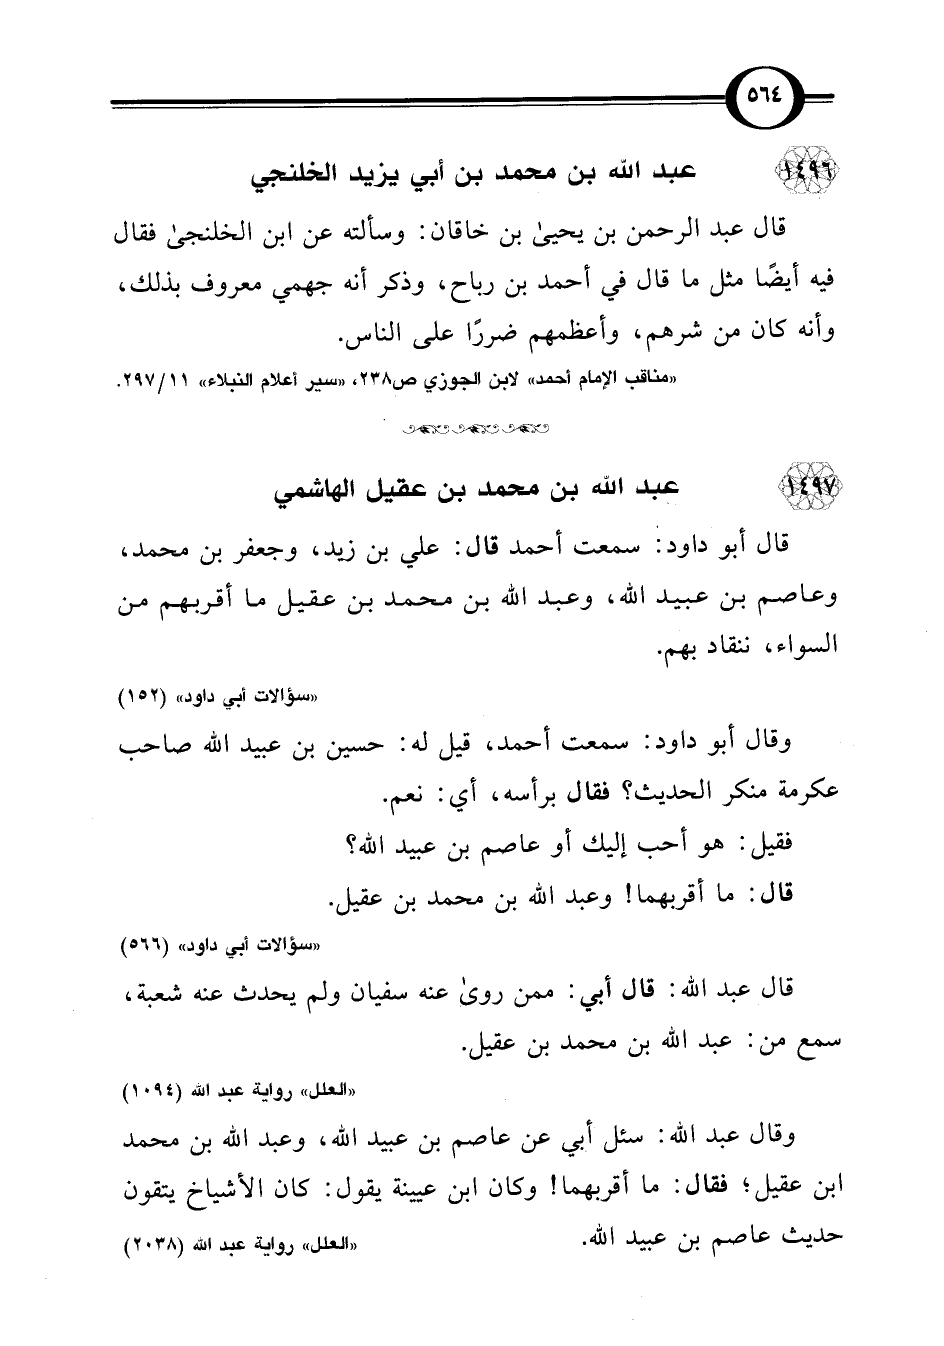 ٥٦٤
١٤٩٦ عبد الله بن محمد بن أبي يزيد الخلنجي
قال عبد الرحمن بن يحيىٰ بن خاقان: وسألته عن ابن الخلنجىٰ فقال
فيه أيضًا مثل ما قال في أحمد بن رباح، وذكر أنه جهمي معروف بذلك،
وأنه كان من شرهم، وأعظمهم ضررًا على الناس.
«مناقب الإمام أحمد» لابن الجوزي ص٢٣٨، «سير أعلام النبلاء» ٢٩٧/١١.
١٤٩٧ عبد الله بن محمد بن عقيل الهاشمي
قال أبو داود: سمعت أحمد قال: علي بن زيد، وجعفر بن محمد،
وعاصم بن عبيد الله، وعبد الله بن محمد بن عقيل ما أقربهم من
السواء، ننقاد بهم.
«سؤالات أبي داود» (١٥٢)
وقال أبو داود: سمعت أحمد، قيل له: حسين بن عبيد الله صاحب
عكرمة منكر الحديث؟ فقال برأسه، أي: نعم.
فقيل: هو أحب إليك أو عاصم بن عبيد الله؟
قال: ما أقربهما! وعبد الله بن محمد بن عقيل.
«سؤالات أبي داود» (٥٦٦)
قال عبد الله: قال أبي: ممن روىٰ عنه سفيان ولم يحدث عنه شعبة،
سمع من: عبد الله بن محمد بن عقيل.
«العلل» رواية عبد الله (١٠٩٤)
وقال عبد الله: سئل أبي عن عاصم بن عبيد الله، وعبد الله بن محمد
ابن عقيل؛ فقال: ما أقربهما! وكان ابن عيينة يقول: كان الأشياخ يتقون
حديث عاصم بن عبيد الله. «العلل» رواية عبد الله (٢٠٣٨)